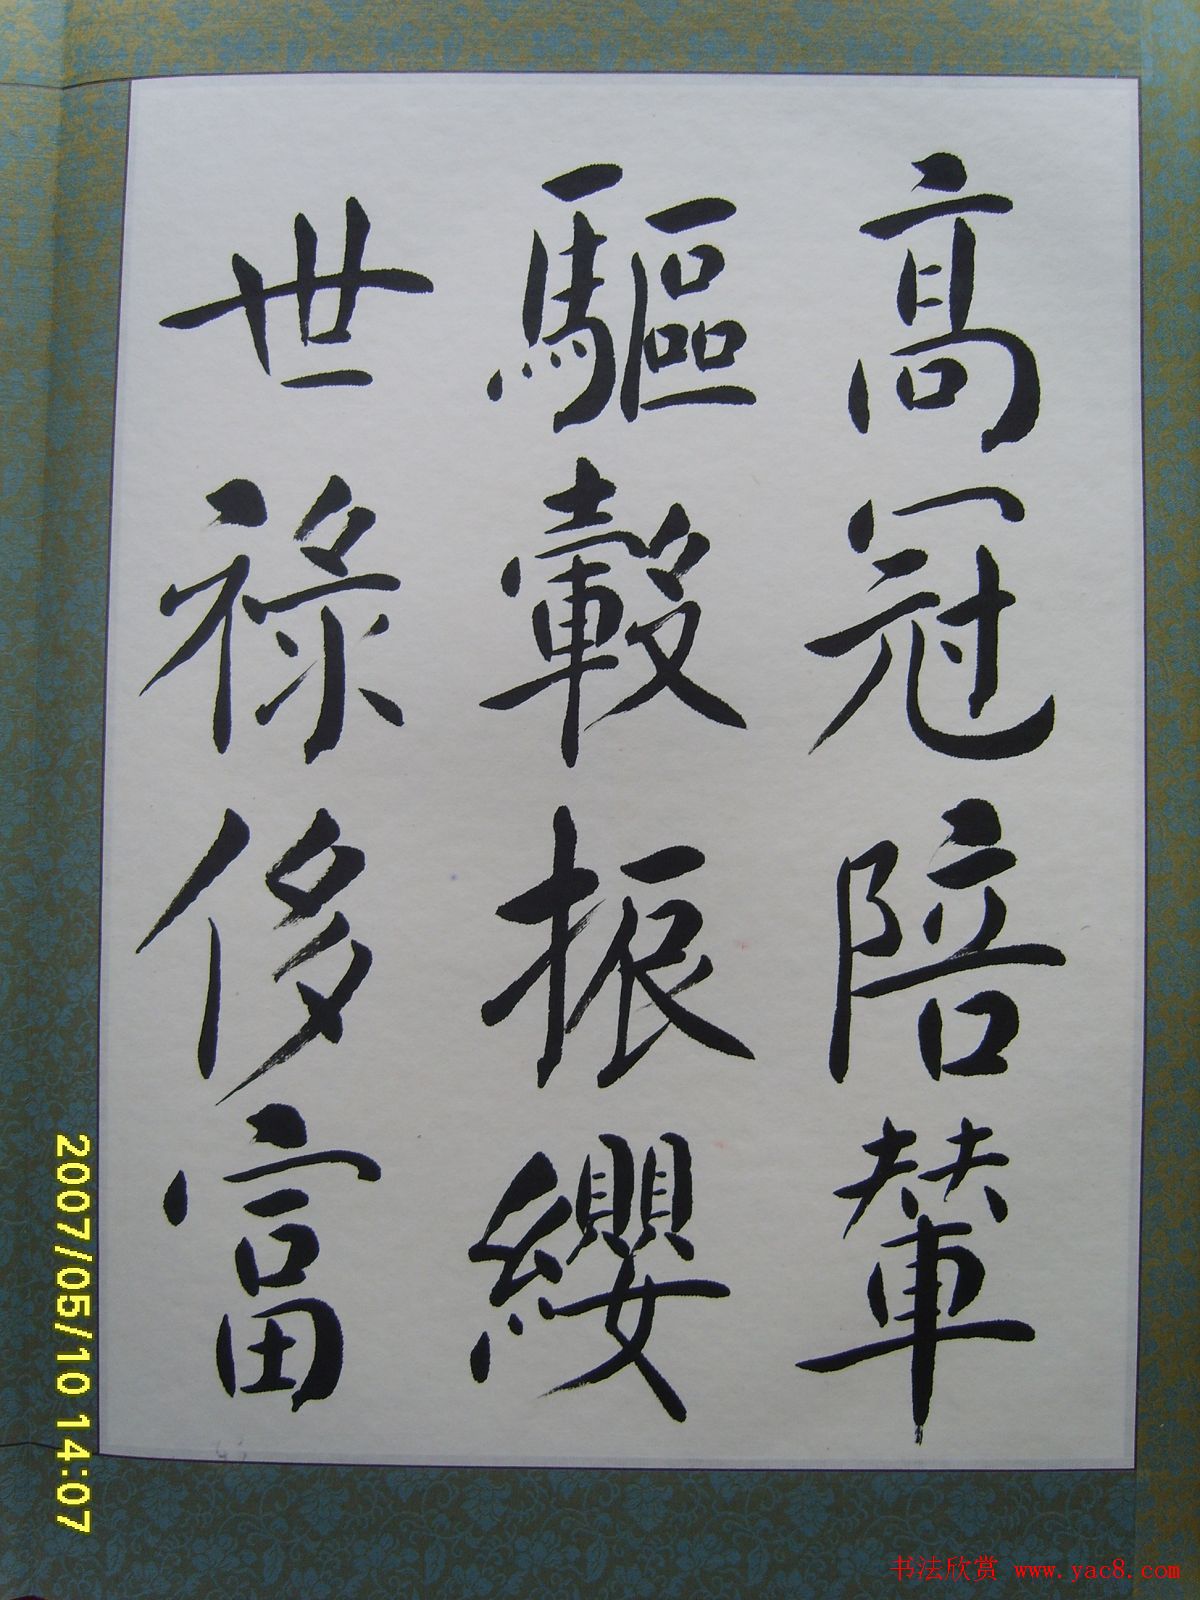 高冠陪輦
驅轂振纓
世祿侈富
2007/05/10 14:07
书法欣赏 www.yac8.com